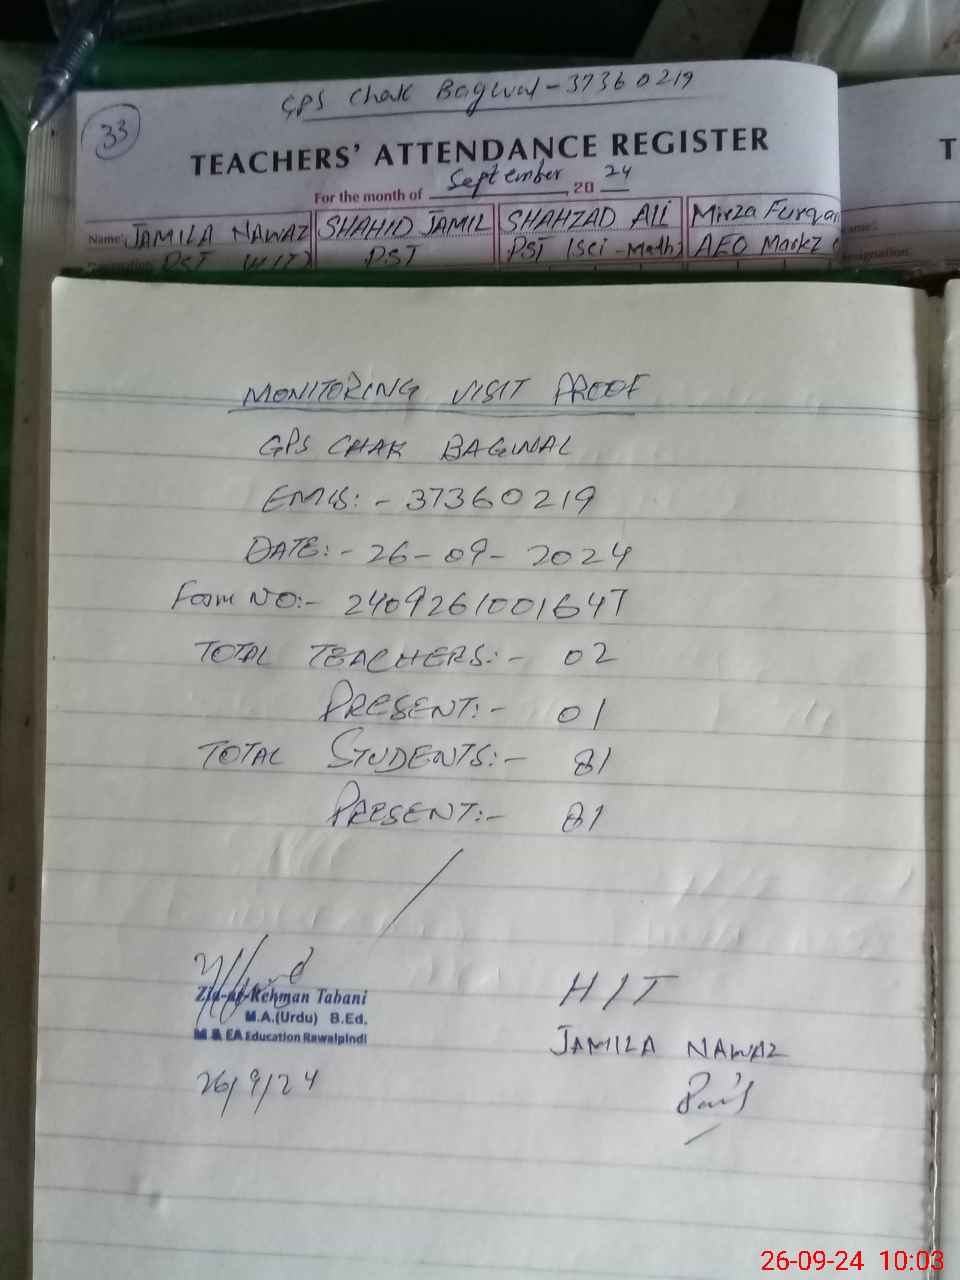 33
GPS Chak Bagwal - 37360219
TEACHERS' ATTENDANCE REGISTER
For the month of September, 20 24
Name: JAMILA NAWAZ SHAHID JAMIL SHAHZAD ALI Mirza Furqan
PST (H/T) PST PST (Sci-Math) AEO Markz
T
MONITORING VISIT PROOF
GPS CHAK BAGWAL
EMIS:- 37360219
DATE:- 26-09-2024
Form NO:- 2409261001647
TOTAL TEACHERS:- 02
PRESENT:- 01
TOTAL STUDENTS:- 81
PRESENT:- 81
Zia-ur-Rehman Tabani
M.A.(Urdu) B.Ed.
M & EA Education Rawalpindi
26/9/24
H/T
JAMILA NAWAZ
26-09-24 10:03